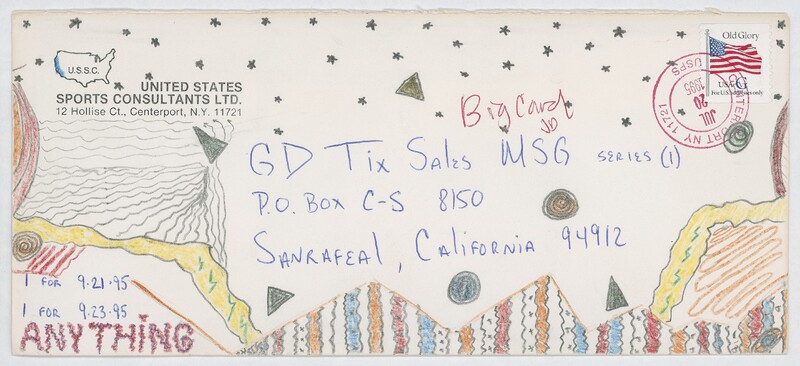 U.S.S.C.
UNITED STATES
SPORTS CONSULTANTS LTD.
12 Hollise Ct., Centerport, N.Y. 11721
Old Glory
USA G
For U.S. addresses only
CENTERPORT NY 11721
JUL
20
1995
USPS
Big Card
JD
GD Tix Sales MSG SERIES (1)
P.O. Box C-S 8150
SANRAFEAL, CALIFORNIA 94912
1 FOR 9.21.95
1 FOR 9.23.95
ANYTHING